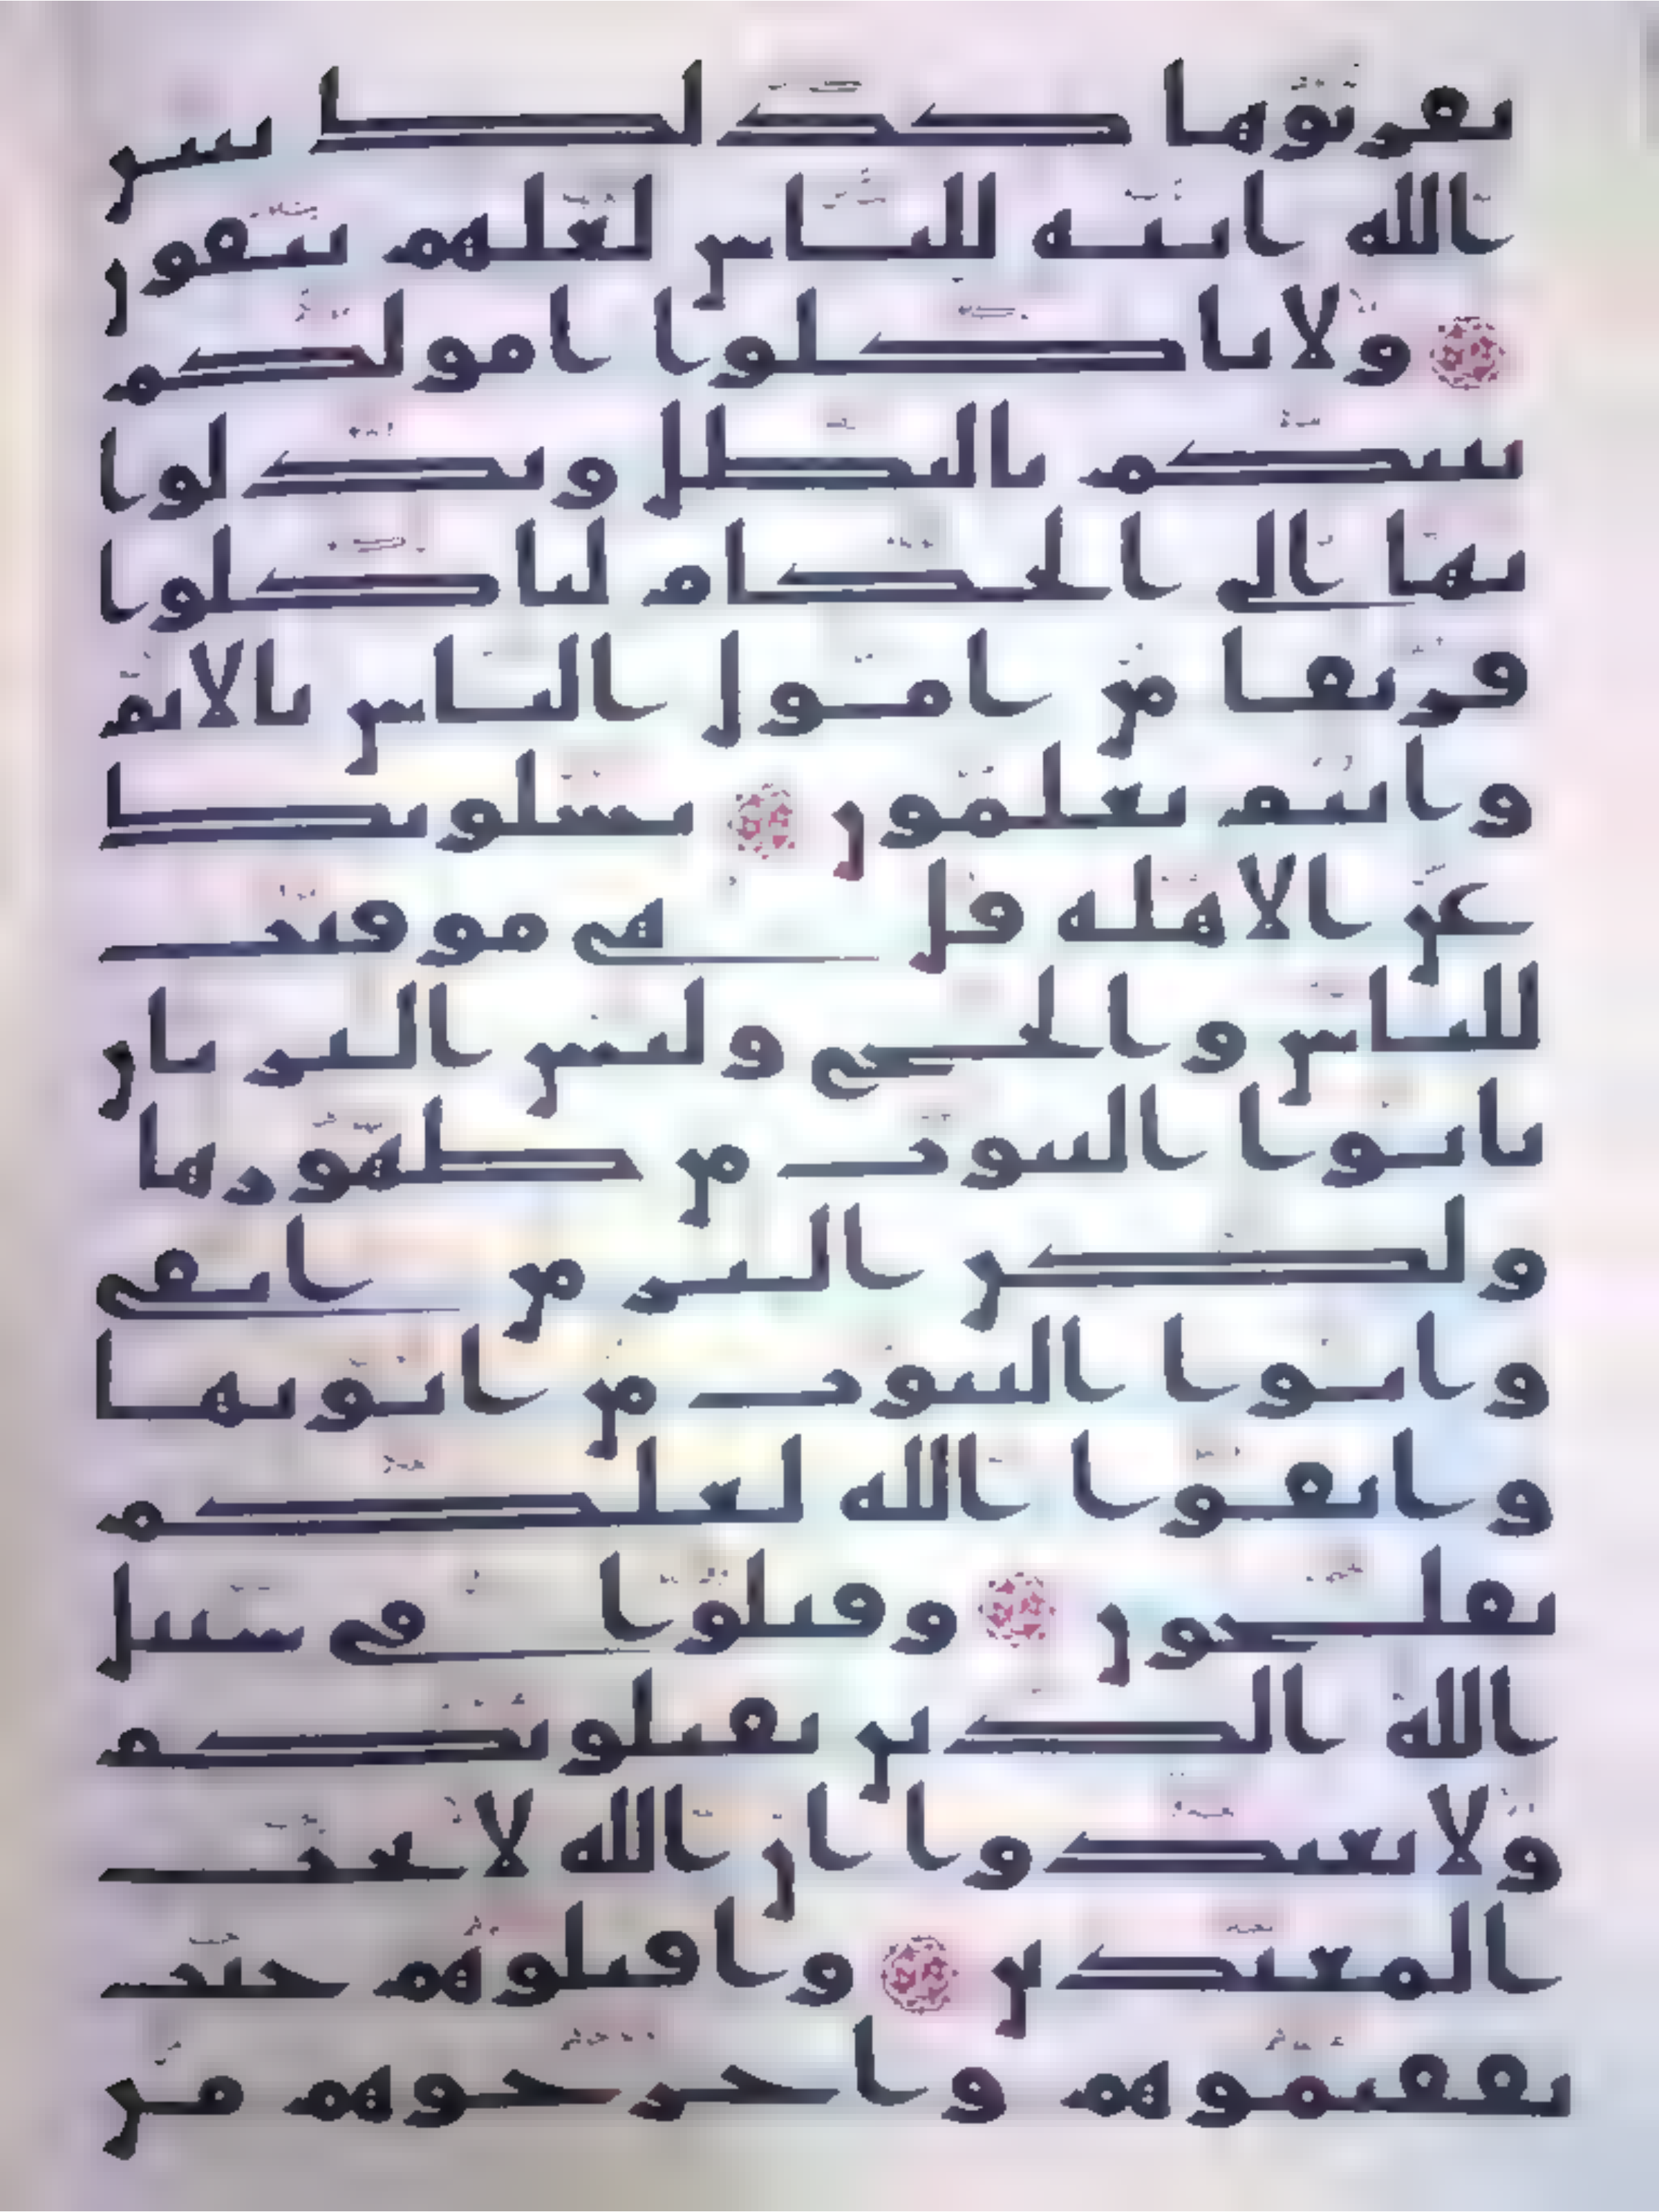 تقربوها كذلك يبين
الله ايته للناس لعلهم يتقون
ولا تاكلوا امولكم
بينكم بالبطل وتدلوا
بها الى الحكام لتاكلوا
فريقا من امول الناس بالاثم
وانتم تعلمون يسلونك
عن الاهلة قل هي موقيت
للناس والحج وليس البر بان
تاتوا البيوت من ظهورها
ولكن البر من اتقى
واتوا البيوت من ابوبها
واتقوا الله لعلكم
تفلحون وقتلوا في سبيل
الله الذين يقتلونكم
ولا تعتدوا ان الله لا يحب
المعتدين واقتلوهم حيث
ثقفتموهم واخرجوهم من